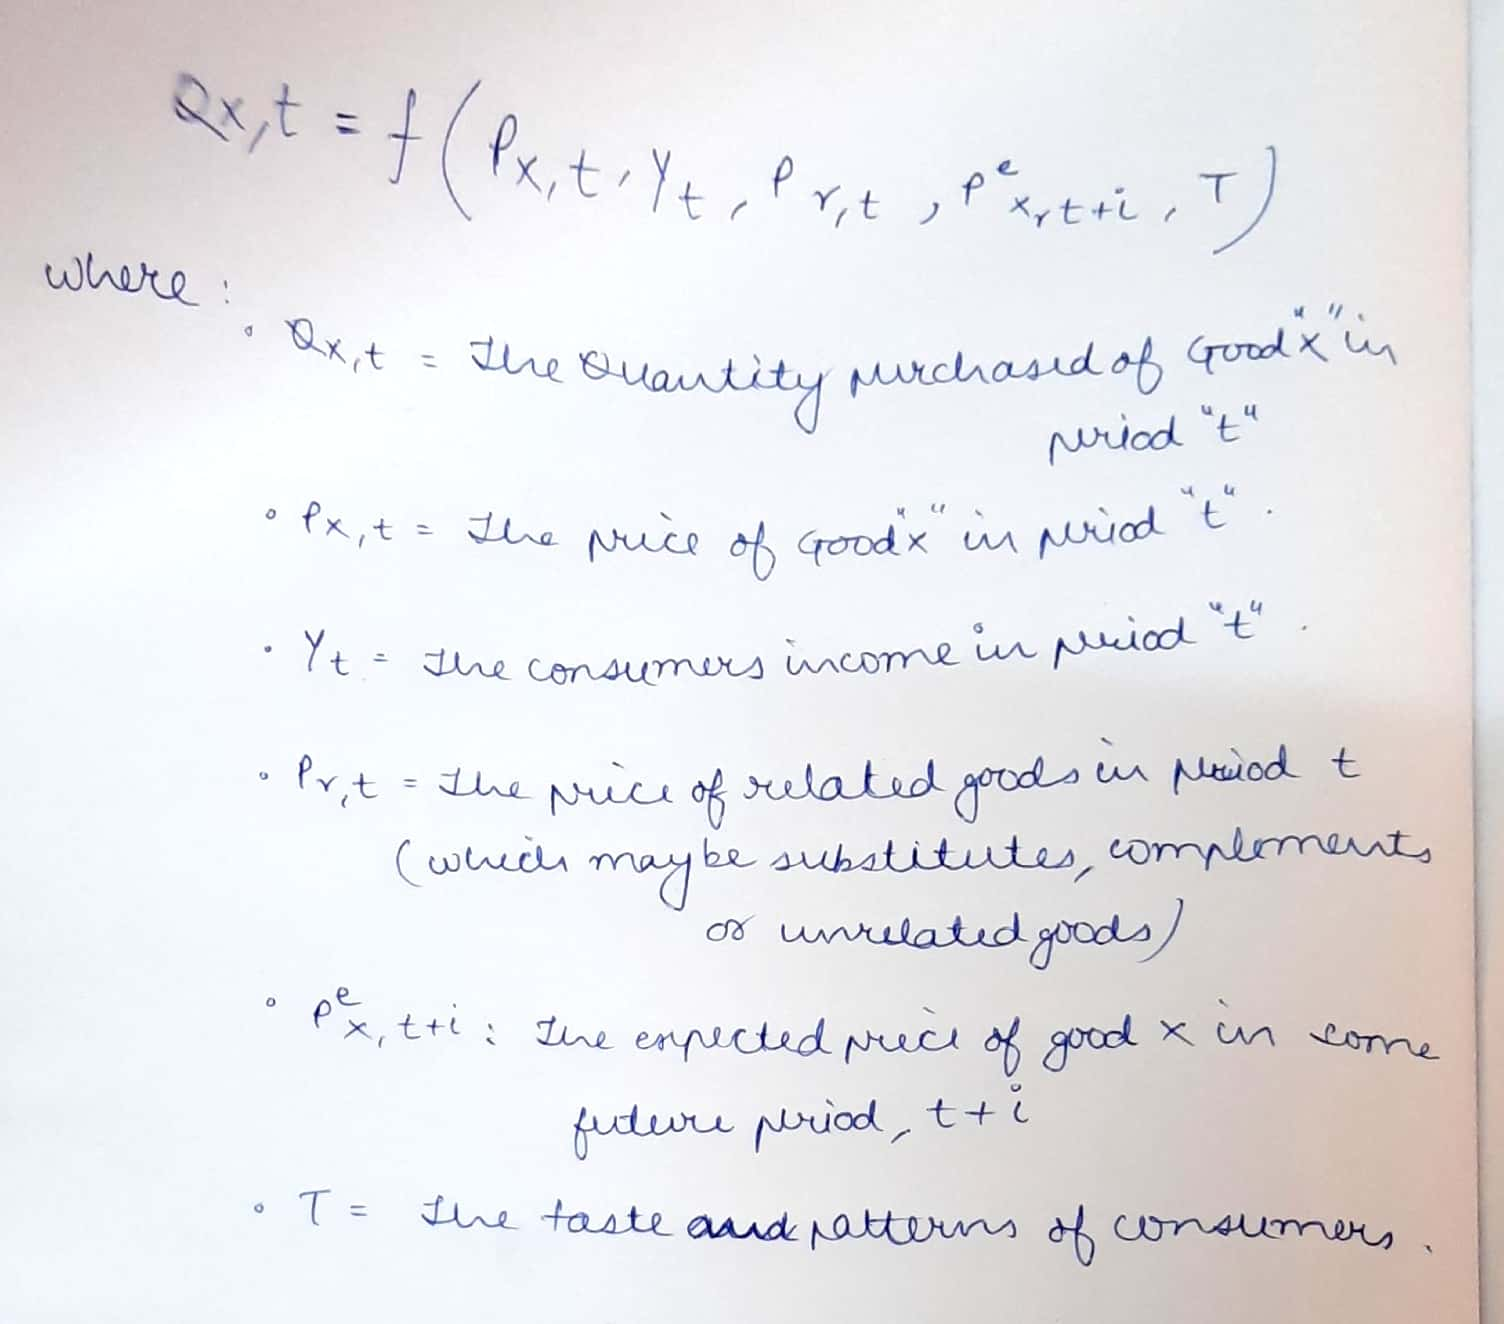 Qx,t = f (Px,t, Yt, Pr,t, Pᵉx,t+i, T)
where :
• Qx,t = The Quantity purchased of Good "x" in
period "t"
• Px,t = The price of Good "x" in period "t".
• Yt = The consumers income in period "t".
• Pr,t = The price of related goods in period t
(which may be substitutes, complements
or unrelated goods)
• Pᵉx,t+i : The expected price of good x in some
future period, t+i
• T = The taste and patterns of consumers.